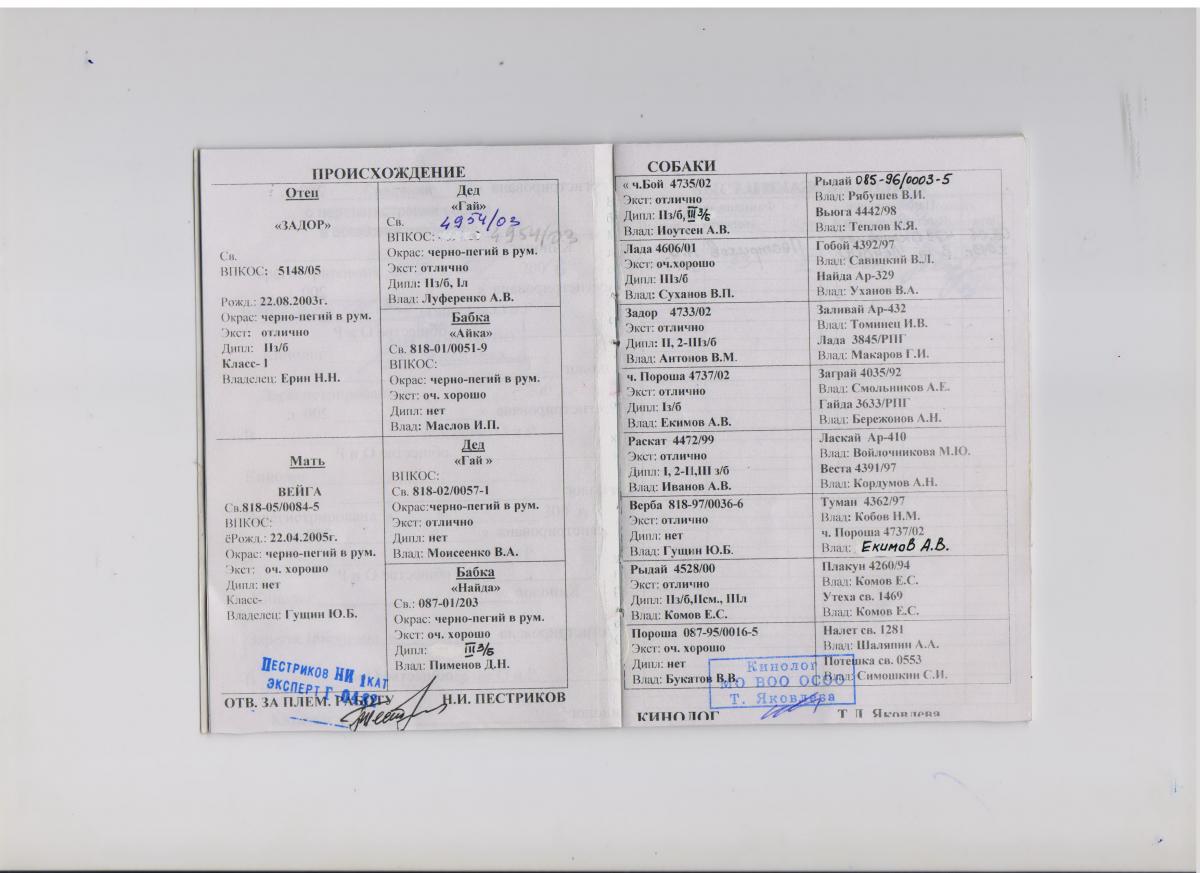 ПРОИСХОЖДЕНИЕ
Отец
«ЗАДОР»
Св.
ВПКОС: 5148/05
Рожд.: 22.08.2003г.
Окрас: черно-пегий в рум.
Экст: отлично
Дипл: IIз/б
Класс- I
Владелец: Ерин Н.Н.
Мать
ВЕЙГА
Св.818-05/0084-5
ВПКОС:
ёРожд.: 22.04.2005г.
Окрас: черно-пегий в рум.
Экст: оч. хорошо
Дипл: нет
Класс-
Владелец: Гущин Ю.Б.
Дед
«Гай»
Св. 4954/03
ВПКОС: 4954/03
Окрас: черно-пегий в рум.
Экст: отлично
Дипл: IIз/б, Iл
Влад: Луференко А.В.
Бабка
«Айка»
Св. 818-01/0051-9
ВПКОС:
Окрас: черно-пегий в рум.
Экст: оч. хорошо
Дипл: нет
Влад: Маслов И.П.
Дед
«Гай »
ВПКОС:
Св. 818-02/0057-1
Окрас:черно-пегий в рум.
Экст: отлично
Дипл: нет
Влад: Моисеенко В.А.
Бабка
«Найда»
Св.: 087-01/203
Окрас: черно-пегий в рум.
Экст: оч. хорошо
Дипл: III з/б
Влад: Пименов Д.Н.
ПЕСТРИКОВ НИ 1КАТ
ЭКСПЕРТ
ОТВ. ЗА ПЛЕМ. РАБОТУ Н.И. ПЕСТРИКОВ
СОБАКИ
« ч.Бой 4735/02
Экст: отлично
Дипл: IIз/б, III з/б
Влад: Иоутсен А.В.
Лада 4606/01
Экст: оч.хорошо
Дипл: IIIз/б
Влад: Суханов В.П.
Задор 4733/02
Экст: отлично
Дипл: II, 2-IIIз/б
Влад: Антонов В.М.
ч. Пороша 4737/02
Экст: отлично
Дипл: Iз/б
Влад: Екимов А.В.
Раскат 4472/99
Экст: отлично
Дипл: I, 2-II,III з/б
Влад: Иванов А.В.
Верба 818-97/0036-6
Экст: отлично
Дипл: нет
Влад: Гущин Ю.Б.
Рыдай 4528/00
Экст: отлично
Дипл: IIз/б,IIсм., IIIл
Влад: Комов Е.С.
Пороша 087-95/0016-5
Экст: оч. хорошо
Дипл: нет
Влад: Букатов В.В.
Рыдай 085-96/0003-5
Влад: Рябушев В.И.
Вьюга 4442/98
Влад: Теплов К.Я.
Гобой 4392/97
Влад: Савицкий В.Л.
Найда Ар-329
Влад: Уханов В.А.
Заливай Ар-432
Влад: Томинец И.В.
Лада 3845/РПГ
Влад: Макаров Г.И.
Заграй 4035/92
Влад: Смольников А.Е.
Гайда 3633/РПГ
Влад: Бережонов А.Н.
Ласкай Ар-410
Влад: Войлочникова М.Ю.
Веста 4391/97
Влад: Кордумов А.Н.
Туман 4362/97
Влад: Кобов Н.М.
ч. Пороша 4737/02
Влад: Екимов А.В.
Плакун 4260/94
Влад: Комов Е.С.
Утеха св. 1469
Влад: Комов Е.С.
Налет св. 1281
Влад: Шаляпин А.А.
Потешка св. 0553
Влад: Симошкин С.И.
Кинолог
МО ВОО ОСОО
Т. Яковлева
КИНОЛОГ Т.Л. Яковлева